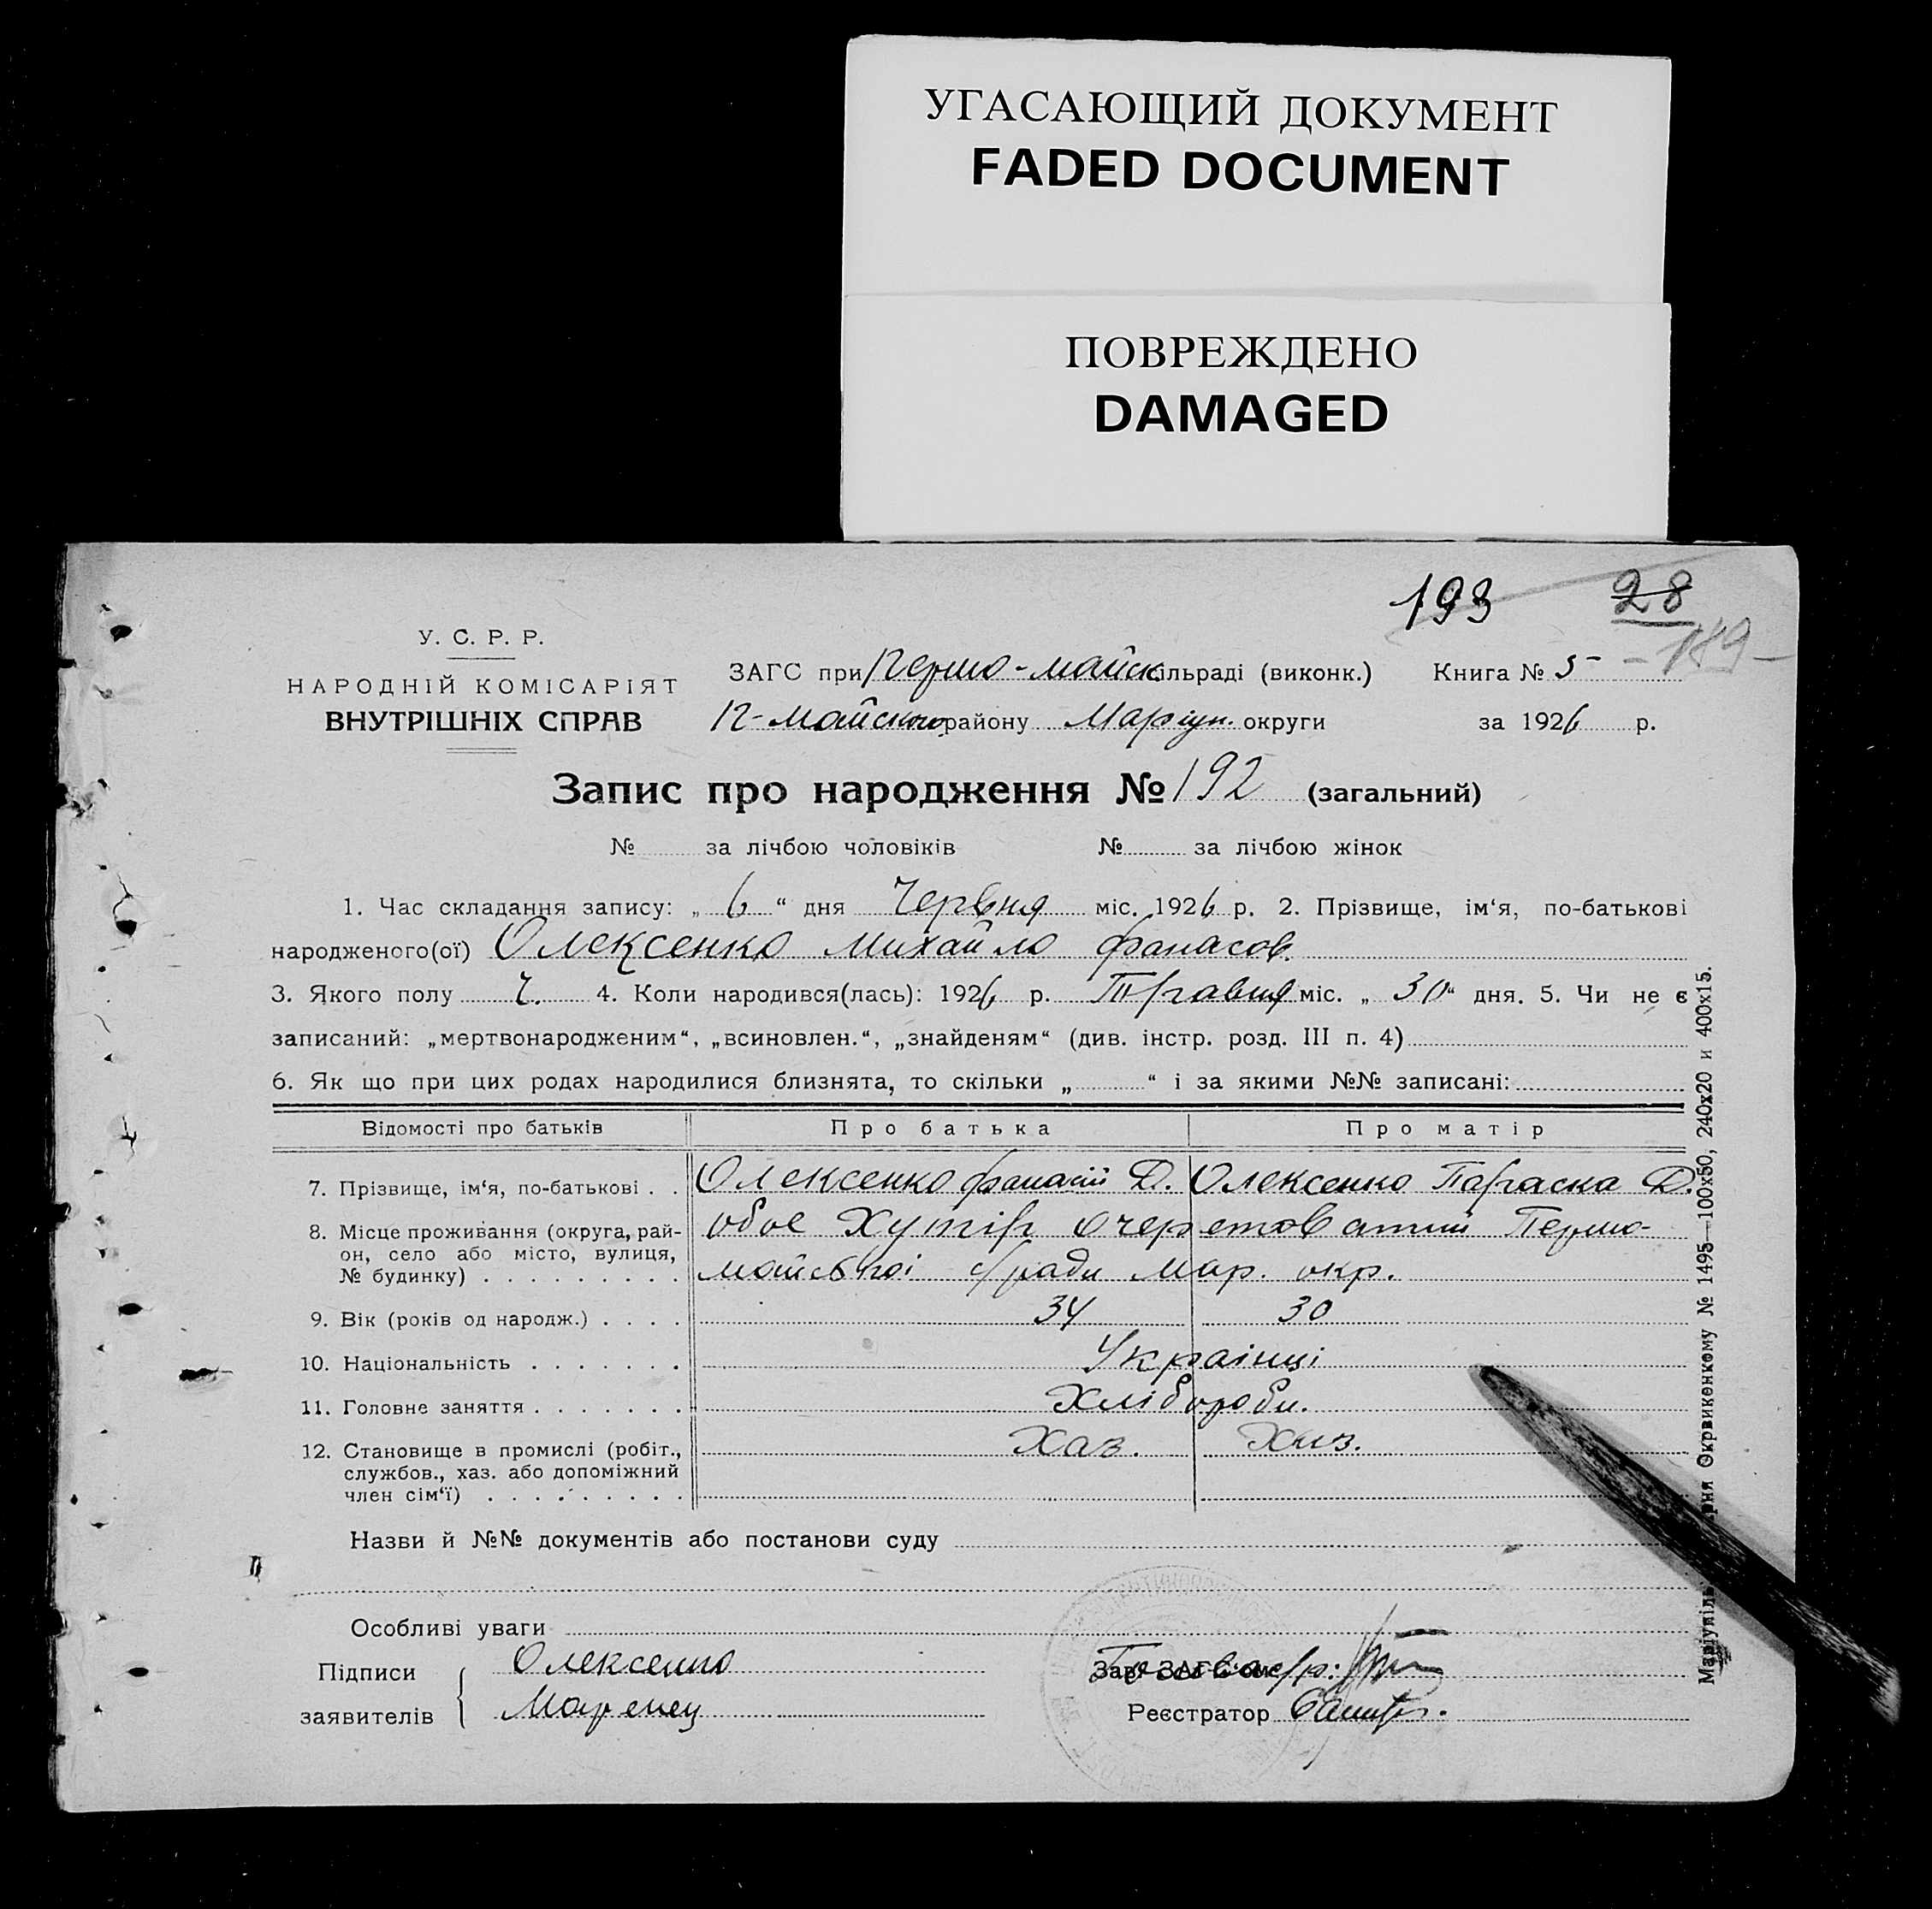 УГАСАЮЩИЙ ДОКУМЕНТ
FADED DOCUMENT
ПОВРЕЖДЕНО
DAMAGED
193 28
-189-
У. С. Р. Р.
НАРОДНІЙ КОМІСАРІЯТ
ВНУТРІШНІХ СПРАВ
ЗАГС при Перто-майск сільраді (виконк.) Книга № 5
П-майского району Маріуп. округи за 1926 р.
Запис про народження № 192 (загальний)
№ за лічбою чоловіків № за лічбою жінок
1. Час складання запису: „6“ дня Червня міс. 1926 р. 2. Прізвище, ім‘я, по-батькові
народженого(ої) Олексенко Михайло Фанасов.
3. Якого полу Ч. 4. Коли народився(лась): 1926 р. Травня міс. „30“ дня. 5. Чи не є
записаний: „мертвонародженим“, „всиновлен.“, „знайденям“ (див. інстр. розд. III п. 4)
6. Як що при цих родах народилися близнята, то скільки „ “ і за якими №№ записані:
Відомості про батьків Про батька Про матір
7. Прізвище, ім‘я, по-батькові . . Олексенко Фанасій Д. Олексенко Параска Д.
8. Місце проживання (округа, рай- обоє Хутір Очеретоватий Перто-
он, село або місто, вулиця,
№ будинку) . . . . . . . . . майської с/ради Мар. окр.
9. Вік (років од народж.) . . . . 34 30
10. Національність . . . . . . . Українці
11. Головне заняття . . . . . . . Хлібороби.
12. Становище в промислі (робіт., Хаз. Хаз.
службов., хаз. або допоміжний
член сім‘ї) . . . . . . . . .
Назви й №№ документів або постанови суду
Особливі уваги
Підписи Олексенко Зав. ЗАГС‘ом
заявителів Маренец Реєстратор
№ 1495—100х50, 240х20 и 400х15.
Окрвиконкому